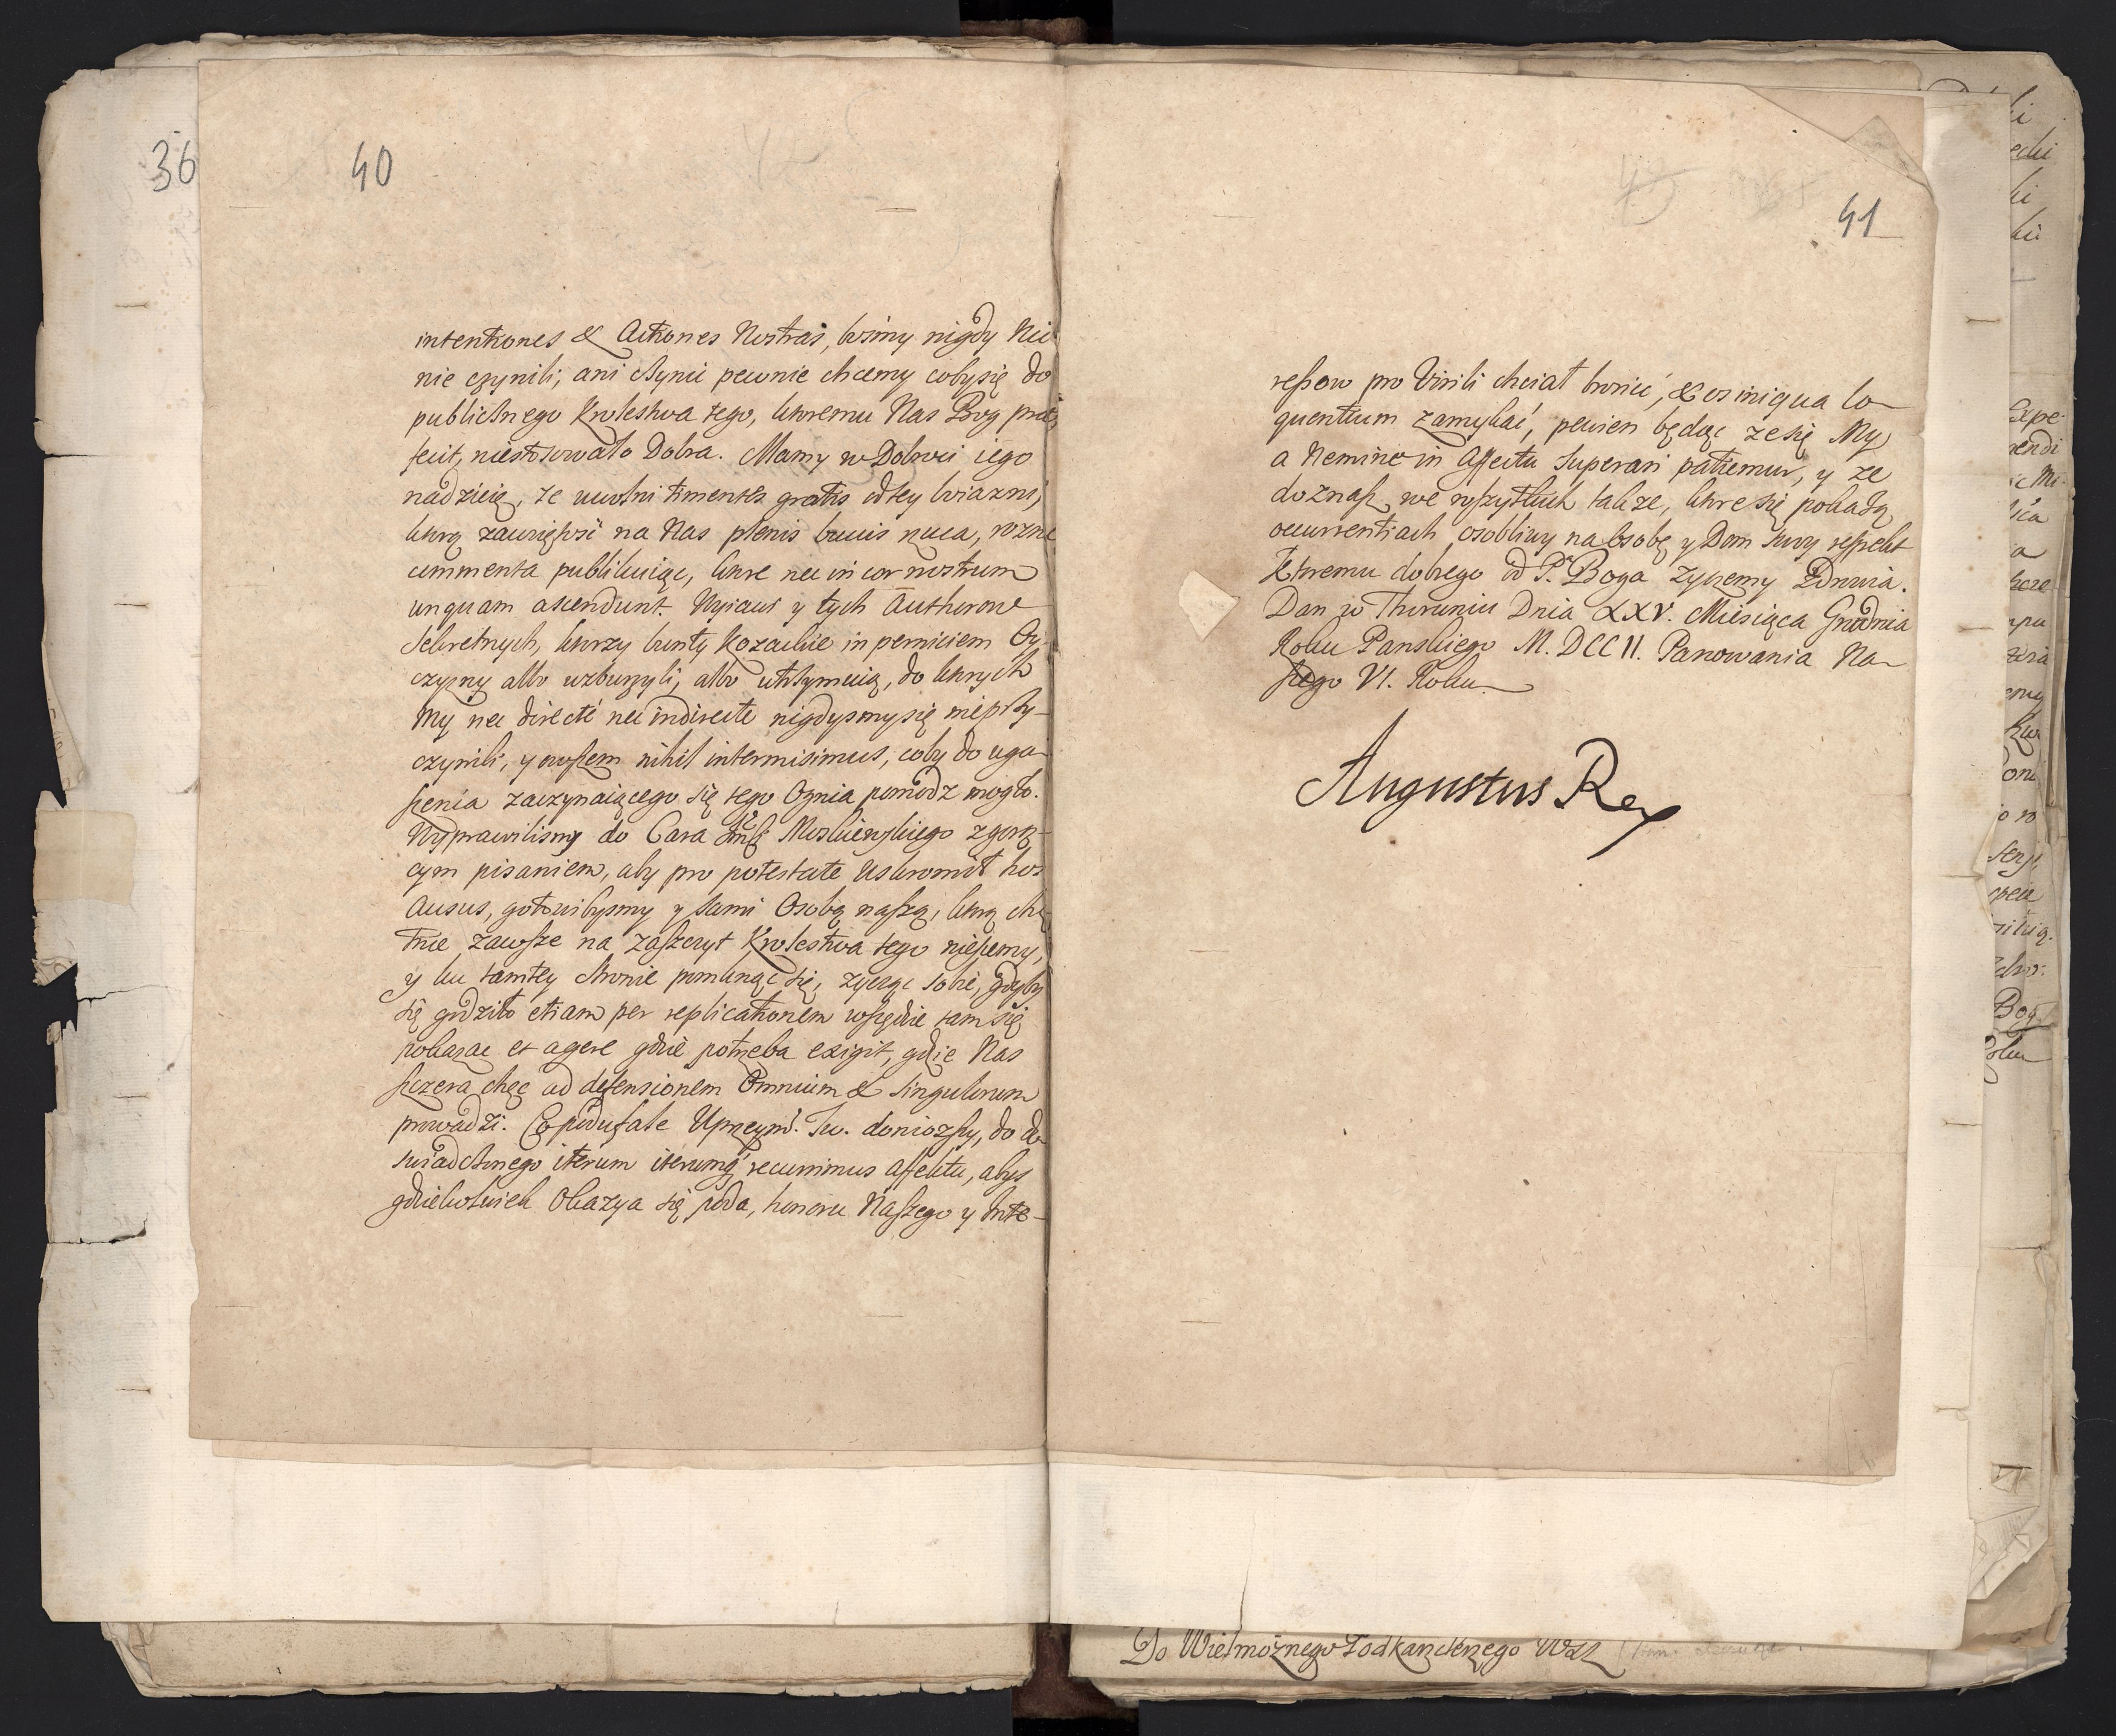 36
40
intentiones & Actiones Nostras, bośmy nigdy Nic
nie czynili, ani czynić pewnie chcemy coby się do
publicznego Krolestwa tego, ktoremu Nas Bog prae
fecit, niestosowało Dobra. Mamy w Dobroci iego
nadzieię, ze uwolni timentes gratis od tey boiazni,
ktorą zawziętość na Nas plenis buccis rzuca, rozne
commenta publikuiąc, ktore nec in cor nostrum
unquam ascendunt. Wyiawi y tych Authorow
Sekretnych, ktorzy bunty Kozackie in perniciem Oy-
czyzny albo wzburzyli, albo utrzymuią, do ktorych
My nec directè nec indirecte nigdysmy się nieprzy-
czynili, y owszem nihil intermisimus, coby do uga-
szenia zaczynaiącego się tego Ognia pomodz mogło.
Wyprawilismy do Cara Moskiewskiego z gorą-
cym pisaniem, aby pro potestate uskromił hos
Ausus, gotowibysmy y sami Osobą naszą, ktorą chę
tnie zawsze na zaszczyt Krolestwa tego niesiemy,
y ku tamtey stronie pomknąc się, zycząc sobie, gdyby
się godziło etiam per replicationem wszędzie tam się
pokazac et agere gdzie potrzeba exigit, gdzie Nas
szczera chęc ad defensionem Omnium & singulorum
prowadzi. Co poufale Uprzeym. Tw. doniozszy, do do
swiadczonego iterum iterumq recurrimus affektu, abys
gdziekolwiek Okazya się poda, honoru Naszego y Inte-
41
ressow pro Virili chciał bronić, & os iniqua lo-
quentium zamykać, pewien będąc ze się My
a Nemine in Affectu Superari patiemur, y ze
doznasz we wszytkich także, ktore się pokażą
occurrentiach osobliwy na Osobę y Dom swoy respekt
Ktoremu dobrego od P. Boga zyczemy Zdrowia.
Dan w Thoruniu Dnia XXV. Miesiąca Grudnia
Roku Panskiego M. DCC II. Panowania Na-
szego VI. Roku.
Augustus Rex
Do Wielmożnego Podkanclerzego WXL